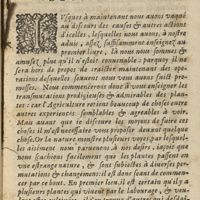 Vsques à maintenant nous auons vaqué
au discours des causes & autres actions
d'icelles, lesquelles nous auons, à nostre
aduis, assez suffisamment enseignez au
premier liure, là où nous nous sommes
amusez plus qu'il n'estoit conuenable: parquoy il ne
sera hors de propos de traitter maintenant des ope-
rations desquelles souuent nous vous auons fait pro-
messes. Nous commencerons donc à vous enseigner les
transmutations prodigieuses & admirables des plan-
tes: car l'Agriculture retient beaucoup de choses entre
autres experiences, semblables & agreables à voir.
Mais auant que ie discoure les moyens de faire ces
choses il m'est necessaire vous proposer deuant quelque
chose. Or la nature monstre plusieurs voyes par lesquel-
les aisément nous paruenons à nos desirs, iaçoit que
nous sachions facilement que les plantes passent en
vne estrange nature, & sont subiectes à diuerses per-
mutations & changement: il est donc temps de commen-
cer par le bout. En premier lieu, il est certain qu'il y a
plusieurs plantes qui viennent par le labourage, & vn-